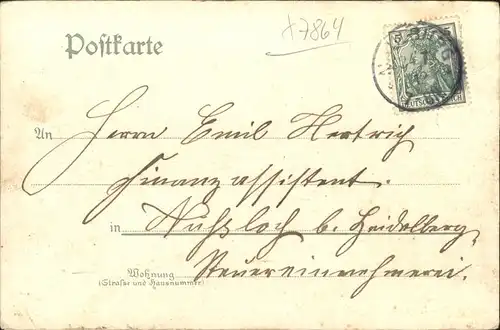 Postkarte
+7864
5
An Herrn Emil Hertrich
Finanzassistent.
in Nußloch b. Heidelberg,
Wohnung
(Straße und Hausnummer)
Steuereinnehmerei.